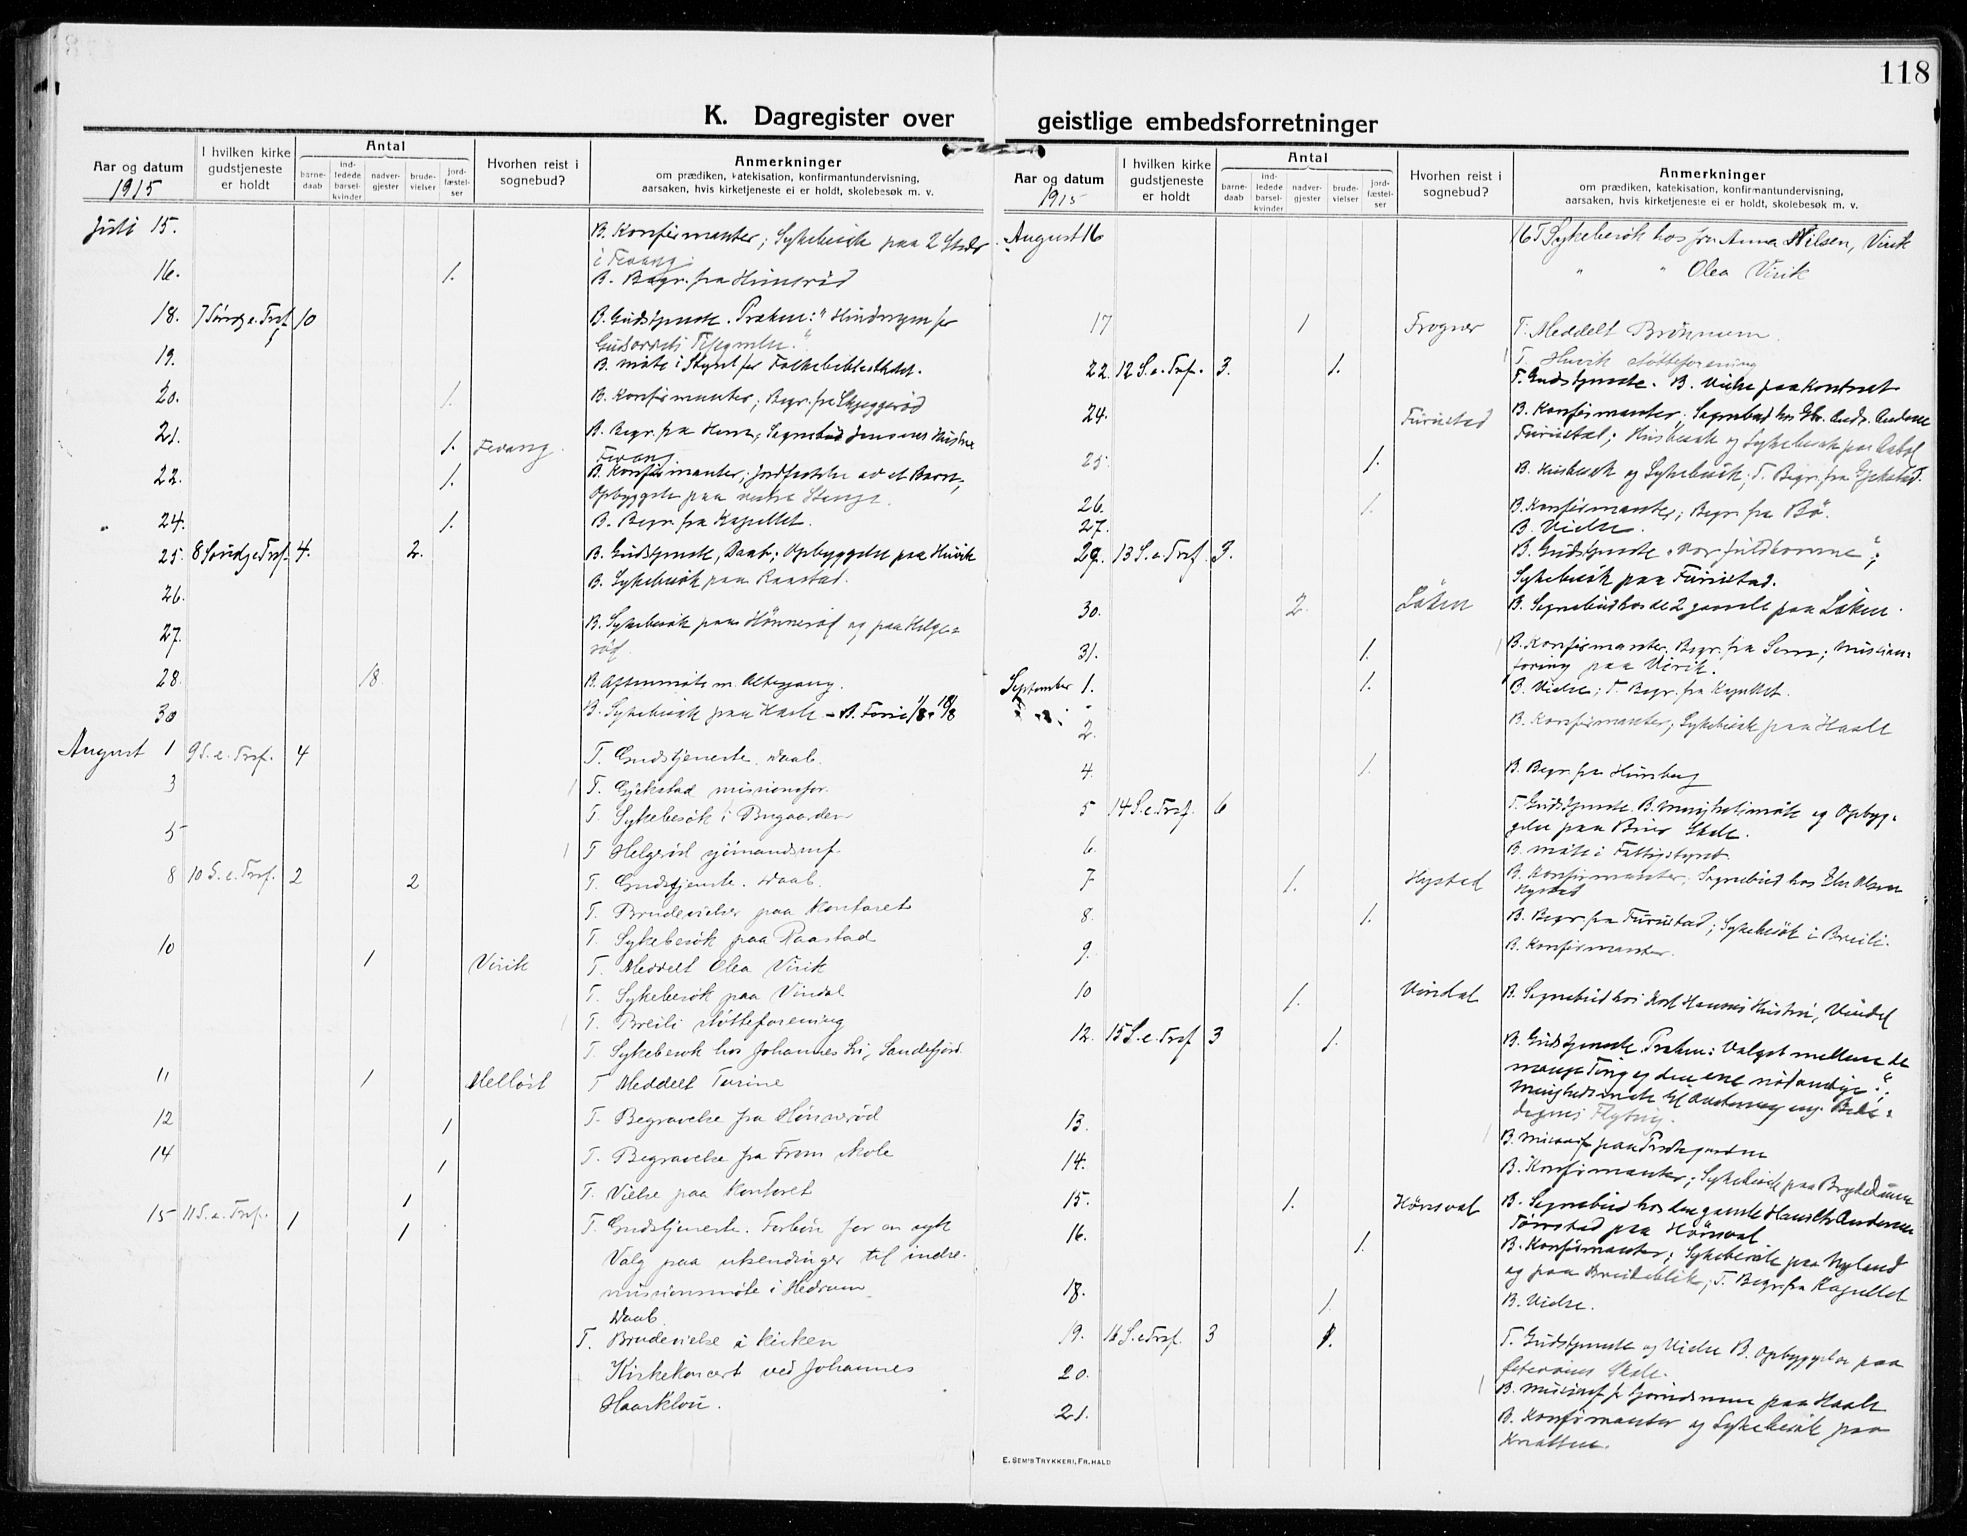 118
K. Dagregister over geistlige embedsforretninger
Aar og datum
1915
I hvilken kirke gudstjeneste er holdt
Antal
barne-daab
ind-ledede barsel-kvinder
nadver-gjester
brude-vielser
jord-fæstel-ser
Hvorhen reist i sognebud?
Anmerkninger
om prædiken, katekisation, konfirmantundervisning,
aarsaken, hvis kirketjeneste ei er holdt, skolebesøk m. v.
Juli 15. B. Konfirmanter; Sykebesøk paa 2 Steder
i Fevang.
16. 1. B. Begr. fra Himsrød
18. 7 Sønd. e. Tref. 10 B. Gudstjeneste. Præken: "Hindringen for
Gudsordets Tilegnelse."
19. B. møte i Styret for Folkebibliotheket.
20. 1. B. Konfirmanter; Begr. fra Skjeggerød
21. 1. Fevang. B. Begr. fra Hem; Sognebud Jensens Hustru
Fevang.
22. 1. B. Konfirmanter; Jordfæstelse av et Barn;
Opbyggelse paa
24. 1. B. Begr. fra Kapellet.
25. 8 Sønd. e. Tref. 4. 2. B. Gudstjeneste, Daab; Opbyggelse paa Huvik
26. B. Sykebesøk paa Raastad.
27. B. Sykebesøk paa Hønnerød og paa Helge-
rød.
28. 18 B. Aftenmøte m. Altergang.
30 B. Sykebesøk paa Haale - B. Ferie 1/8 - 18/8
August 1 9 S. e. Tref. 4 T. Gudstjeneste. Daab.
3 T. Gjekstad missionsfor.
T. Sykebesøk i Bugaarden
5 T. Helgerød sjømandsmf.
8 10 S. e. Tref. 2 2 T. Gudstjeneste. Daab.
T. Brudevielser paa kontoret
T. Sykebesøk paa Raastad
10 1 Virik T. Meddelt Olea Virik
T. Sykebesøk paa Vindal
T. Breili støtteforening
T. Sykebesøk hos Johannes Li, Sandefjord.
11 1 Melløst T. Meddelt Turine
12 1 T. Begravelse fra Hønnerød
14 1 T. Begravelse fra Frem skole
1 T. Vielse paa kontoret
15 11 S. e. Tref. 1 1 T. Gudstjeneste. Forbøn for en syk
Valg paa utsendinger til indre-
missionsmøte i Hedrum
Daab.
T. Brudevielse i kirken
Kirkekoncert ved Johannes
Haarklou.
Aar og datum
1915
I hvilken kirke gudstjeneste er holdt
Antal
barne-daab
ind-ledede barsel-kvinder
nadver-gjester
brude-vielser
jord-fæstel-ser
Hvorhen reist i sognebud?
Anmerkninger
om prædiken, katekisation, konfirmantundervisning,
aarsaken, hvis kirketjeneste ei er holdt, skolebesøk m. v.
August 16 16 T Sykebesøk hos fru Anna Nilsen, Virik
" " Olea Virik
17 1 Frogner T. Meddelt
T. Huvik støtteforening
22. 12 S. e. Tref. 3. 1. T. Gudstjeneste. B. Vielse paa Kontoret
24. Furustad B. Konfirmanter. Sognebud hos Andersen
Furustad; Husbesøk og Sykebesøk paa
25. 1. B. Husbesøk og Sykebesøk; T. Begr. fra Gjekstad.
26. 1. B. Konfirmanter; Begr. fra Bø.
27. B. Vielse.
29. 13 S. e. Tref. 3. B. Gudstjeneste "Vær fuldkomne";
Sykebesøk paa Furustad.
30. 2. Løken B. Sognebud hos de 2 gamle paa Løken.
31. 1. B. Konfirmanter. Begr. fra Sem; Mission-
foring paa Virik.
September 1. 1. B. Vielse; T. Begr. fra Kapellet.
2. B. Konfirmanter; Sykebesøk paa Haale
4. 1. B. Begr. fra Hunsberg
5 14 S. e. Tref. 6 T. Gudstjeneste. B. Menighetsmøte og Opbyg-
gelse paa Skole.
6. B. møte i Fattigstyret.
7 1. Nystad B. Konfirmanter; Sognebud hos Olsen
Nystad
8. 1. B. Begr. fra Furustad; Sykebesøk i Breili.
9. B. Konfirmanter.
10 1. Vindal B. Sognebud hos Karl Hansens Hustru, Vindal
12. 15 S. e. Tref 3 1. B. Gudstjeneste. Præken: Valget mellem de
mange Ting og den ene nødvendige.";
Menighedsmøte
13. B. Missionsf. paa Prestegaarden
14. B. Konfirmanter; Sykebesøk paa
15. 1. Hørsval B. Sognebud hos den gamle Hans Chr. Andersen
paa Hørsval
16. 1. B. Konfirmanter; Sykebesøk paa Nyland
og paa Breidablik; T. Begr. fra Kapellet
18. 1. B. Vielse.
19. 16 S. e Tref. 3 1. T. Gudstjeneste og Vielse B. Opbyggelse paa
Skole.
20. B. missionsf. paa Haale
21. B. Konfirmanter og Sykebesøk paa
Knatten.
E. SEM'S TRYKKERI, FR.HALD